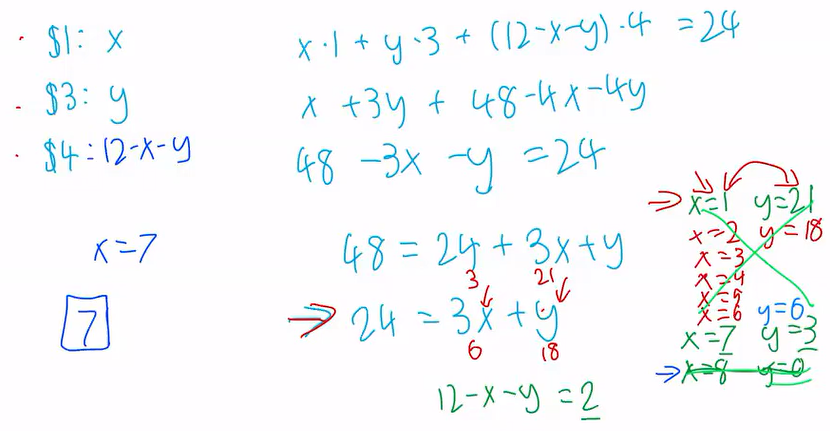 $1: x
$3: y
$4: 12-x-y
x·1 + y·3 + (12-x-y)·4 = 24
x + 3y + 48-4x-4y
48 - 3x - y = 24
48 = 24 + 3x + y
3 21
⇒ 24 = 3x + y
6 18
12-x-y = 2
x=7
7
⇒ x=1 y=21
x=2 y=18
x=3
x=4
x=5
x=6 y=6
x=7 y=3
⇒ x=8 y=0